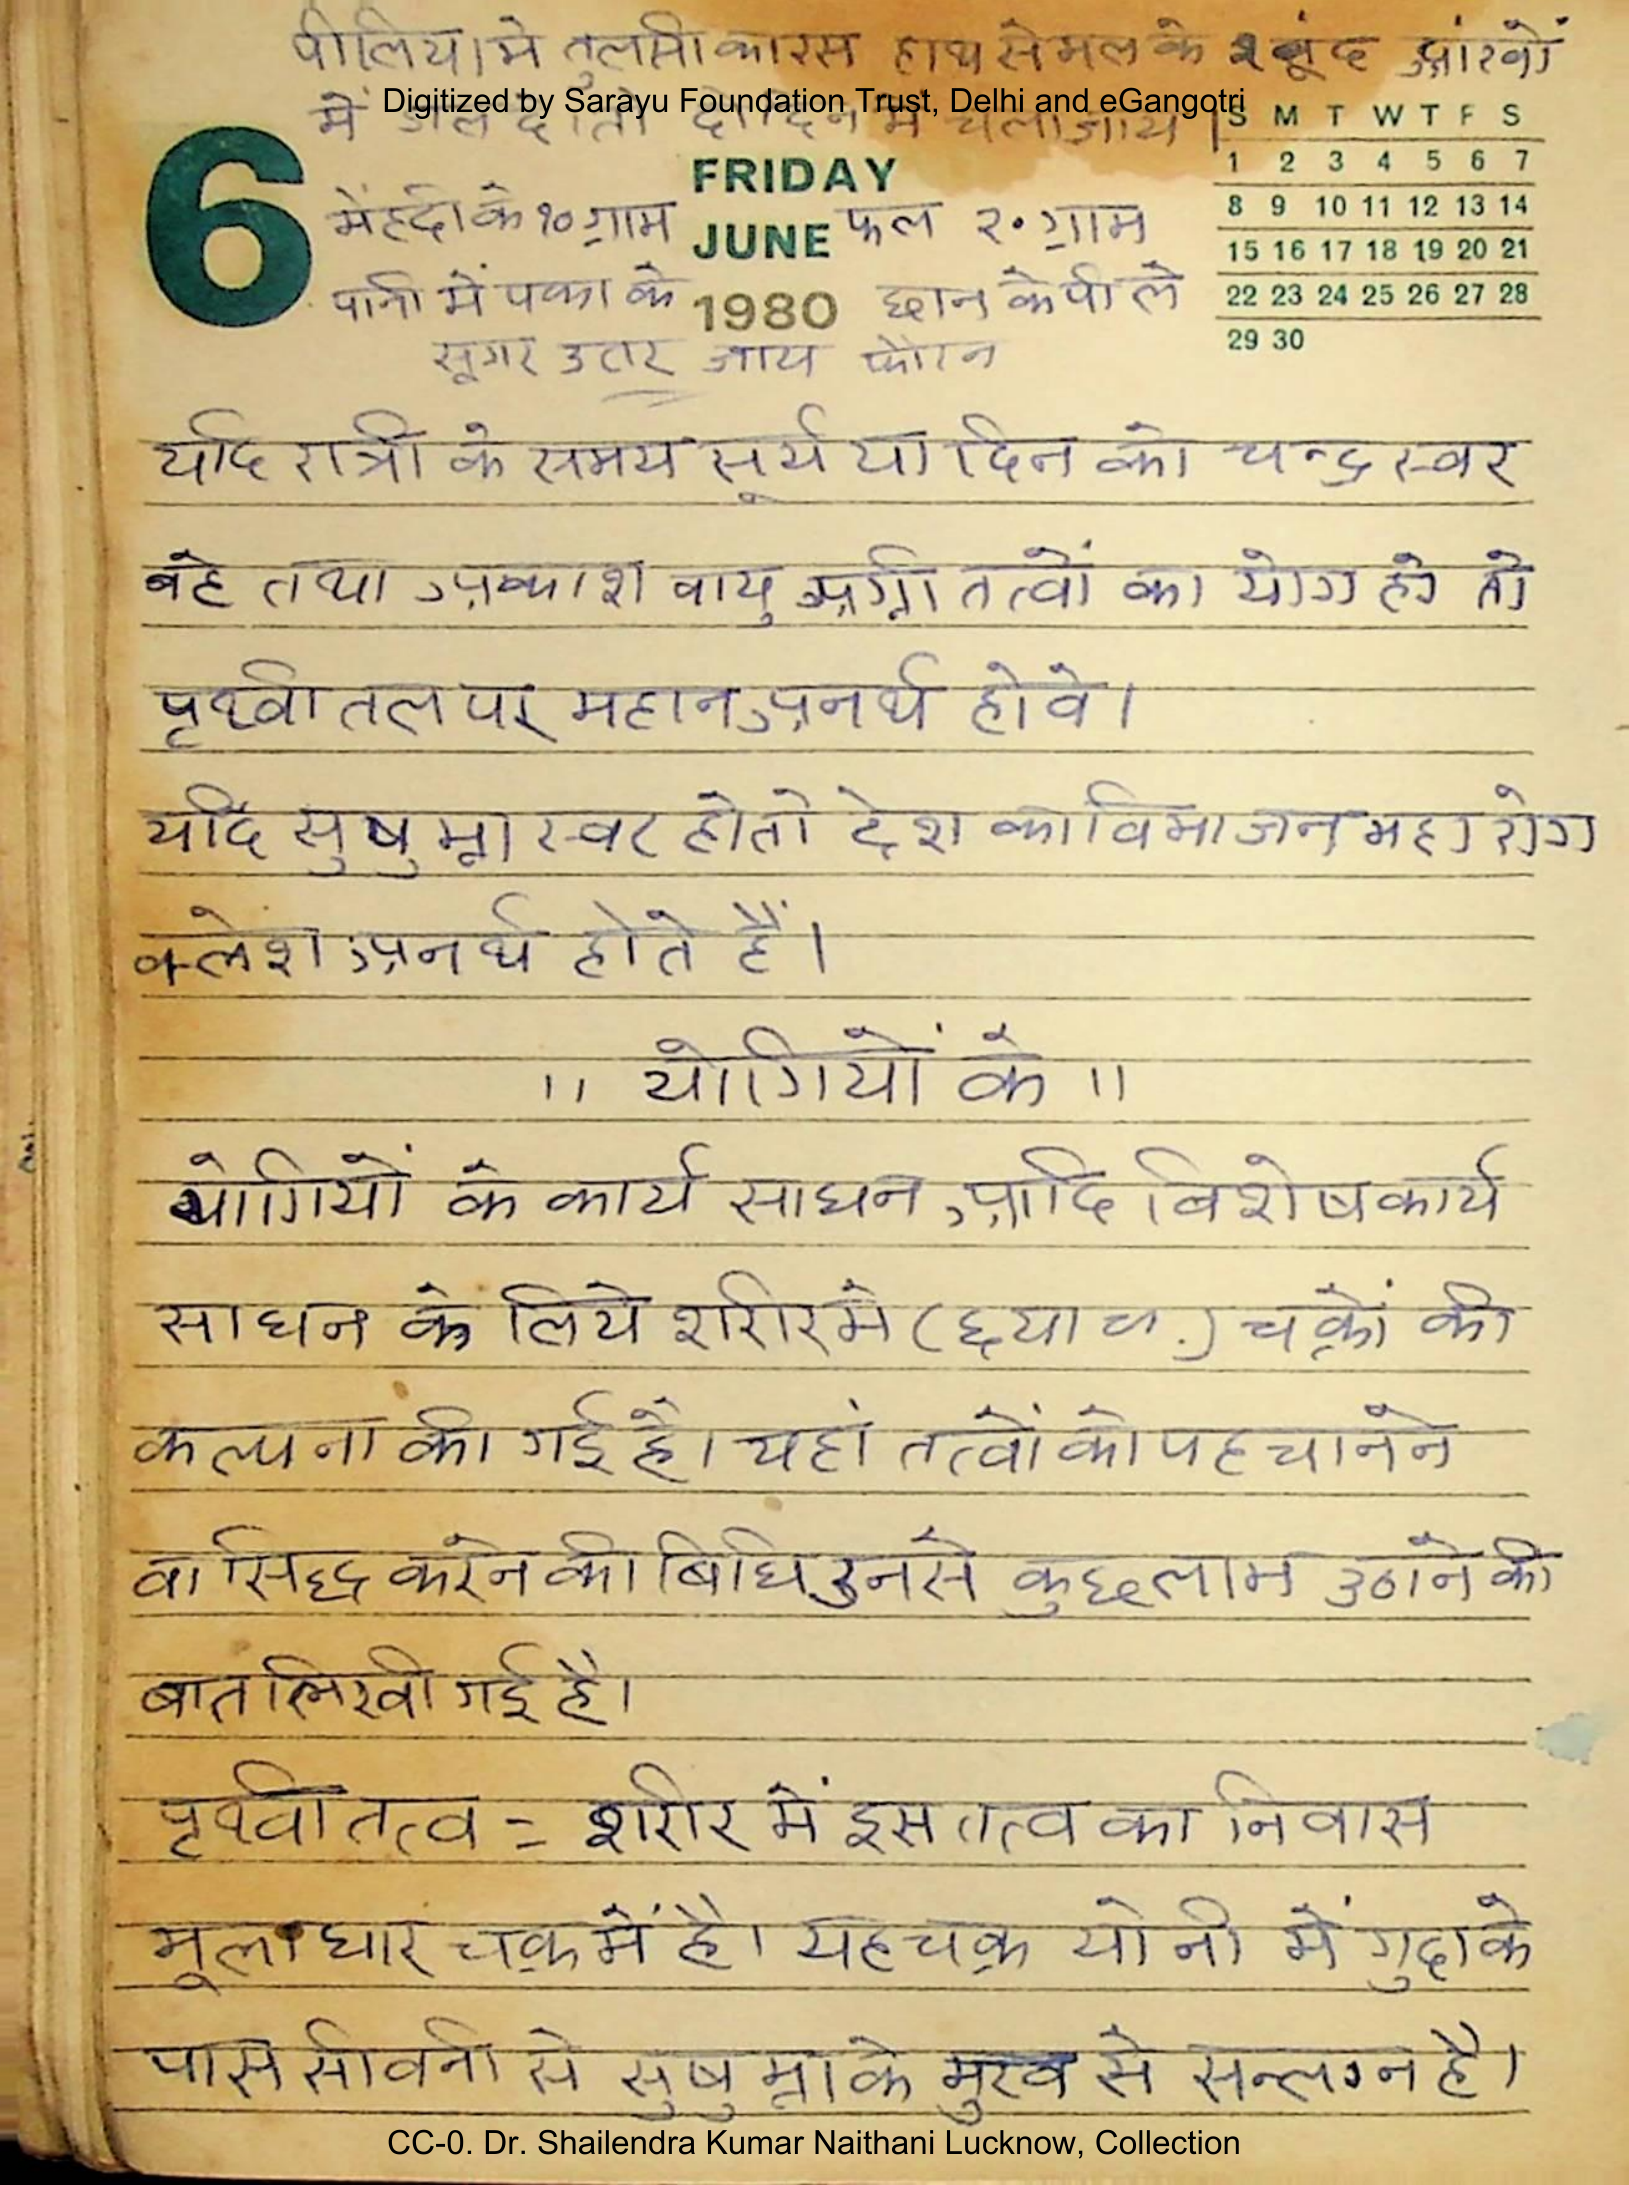 पीलिया मे तुलसी का रस हाथ से मल के २ बूंद आंखों
Digitized by Sarayu Foundation Trust, Delhi and eGangotri
में डाल दे तो दो दिन में चला जाय।
S M T W T F S
1 2 3 4 5 6 7
8 9 10 11 12 13 14
15 16 17 18 19 20 21
22 23 24 25 26 27 28
29 30
6
FRIDAY
JUNE
1980
मेंहदी के १० ग्राम फल २० ग्राम
पानी में पका के छान के पी ले
सूगर उतर जाय फौरन
यदि रात्री के समय सूर्य या दिन को चन्द्र स्वर
बहे तथा आकाश वायु अग्नी तत्वों का योग हो तो
पृथ्वी तल पर महान अनर्थ होवे।
यदि सुषुम्ना स्वर हो तो देश का विभाजन महा रोग
क्लेश अनर्थ होते हैं।
।। योगियों के ।।
योगियों के कार्य साधन आदि विशेष कार्य
साधन के लिये शरीर मे ( चक्रों की
कल्पना की गई है। यहां तत्वों को पहचानने
वा सिद्ध करने की बिधि उनसे कुछ लाभ उठाने की
बात लिखी गई है।
पृथ्वी तत्व = शरीर में इस तत्व का निवास
मूलाधार चक्र में है। यह चक्र योनी में गुदा के
पास सीवनी से सुषुम्ना के मुख से सन्लग्न है।
CC-0. Dr. Shailendra Kumar Naithani Lucknow, Collection